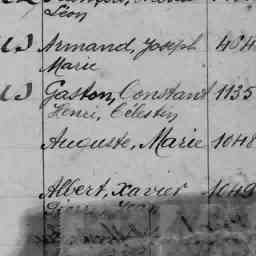 Léon
Armand, Joseph 484
Marie
Gaston, Constant 1135
Henri, Célestin
Auguste, Marie 1048
Albert, Xavier 1049